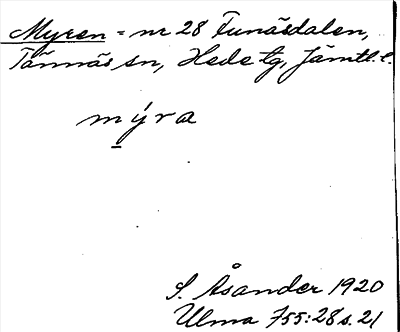 Myren = nr 28 Funäsdalen,
Tännäs sn, Hede tg, Jämtl. l.
mýra
S. Åsander 1920
Ulma 755:28 s. 21